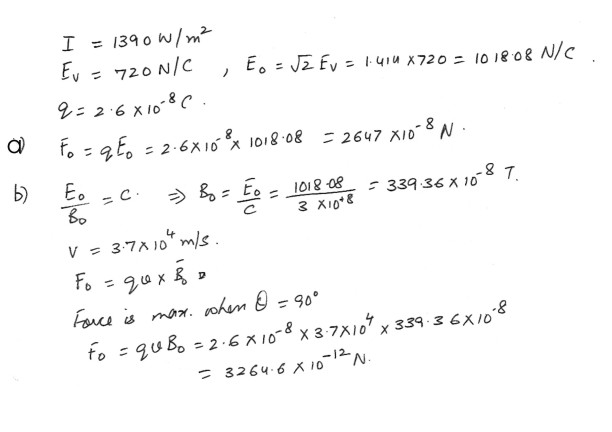 I = 1390 W/m²
Eᵥ = 720 N/C , E₀ = √2 Eᵥ = 1.414 × 720 = 1018.08 N/C .
q = 2.6 × 10⁻⁸ C .
a) F₀ = qE₀ = 2.6 × 10⁻⁸ × 1018.08 = 2647 × 10⁻⁸ N .
b) E₀/B₀ = C . ⇒ B₀ = E₀/C = 1018.08/3 × 10⁺⁸ = 339.36 × 10⁻⁸ T.
V = 3.7 × 10⁴ m/s .
F₀ = qv × B₀
Force is max. when θ = 90°
F₀ = qvB₀ = 2.6 × 10⁻⁸ × 3.7 × 10⁴ × 339.36 × 10⁻⁸
= 3264.6 × 10⁻¹² N.